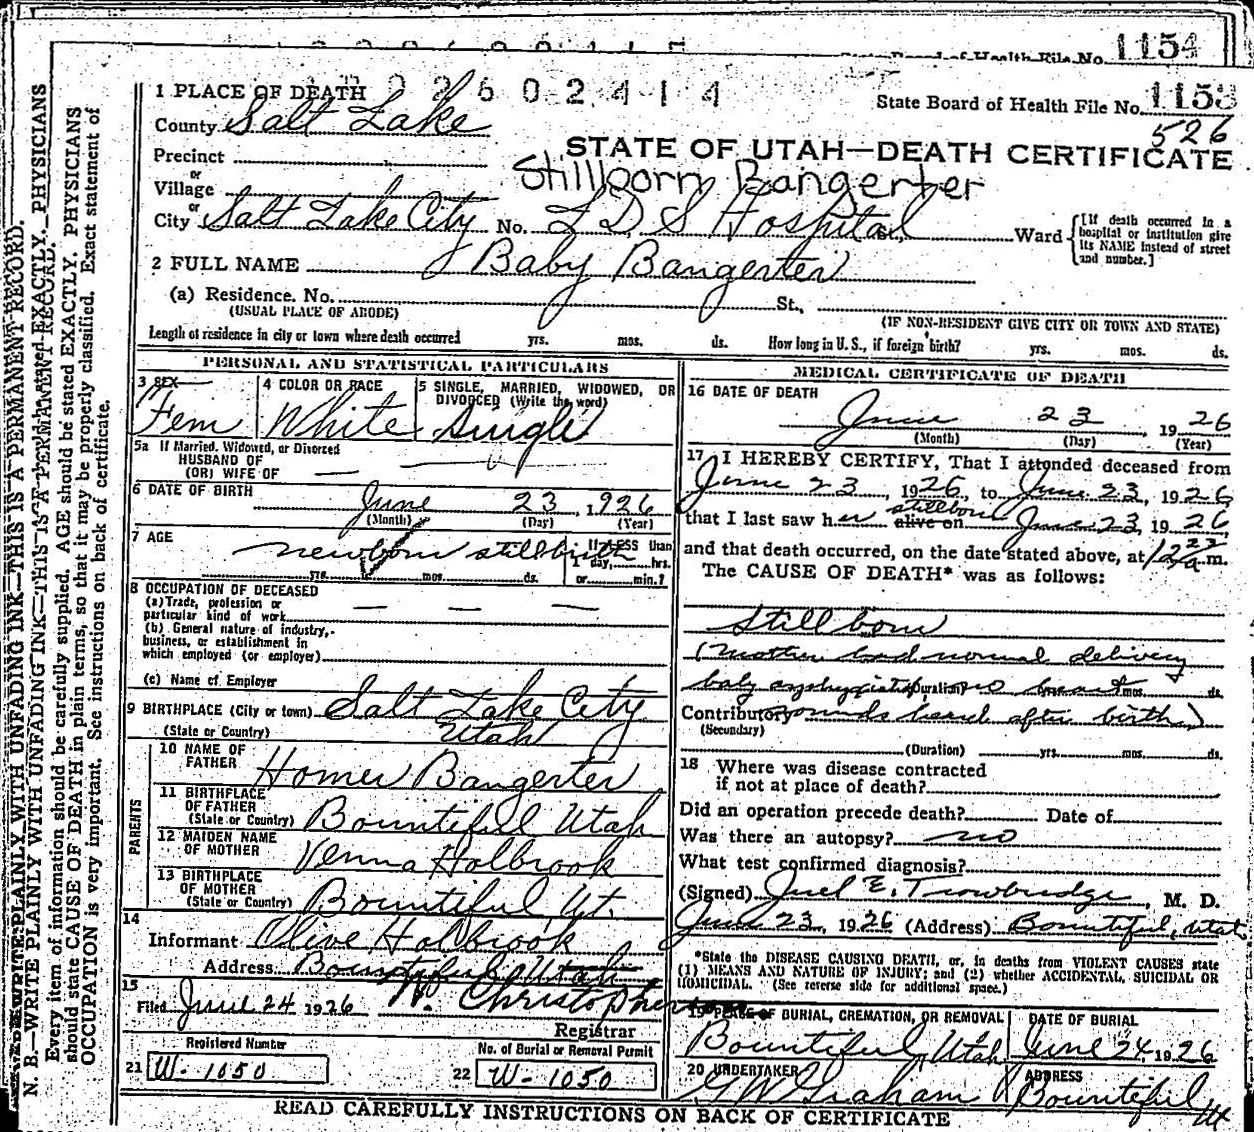 State Board of Health File No. 1154
1 PLACE OF DEATH 2602414 State Board of Health File No. 1153
County Salt Lake 526
STATE OF UTAH—DEATH CERTIFICATE
Precinct
or
Village Stillborn Bangerter
or
City Salt Lake City No. L D S Hospital St., Ward [If death occurred in a hospital or institution give its NAME instead of street and number.]
2 FULL NAME Baby Bangerter
(a) Residence. No. St.,
(USUAL PLACE OF ABODE) (IF NON-RESIDENT GIVE CITY OR TOWN AND STATE)
Length of residence in city or town where death occurred yrs. mos. ds. How long in U. S., if foreign birth? yrs. mos. ds.
PERSONAL AND STATISTICAL PARTICULARS
3 SEX 4 COLOR OR RACE 5 SINGLE, MARRIED, WIDOWED, OR DIVORCED (Write the word)
Fem White Single
5a If Married, Widowed, or Divorced
HUSBAND OF
(OR) WIFE OF —
6 DATE OF BIRTH June 23, 1926
(Month) (Day) (Year)
7 AGE newborn stillbirth If LESS than
yrs. mos. ds. 1 day, hrs.
or min.?
8 OCCUPATION OF DECEASED
(a) Trade, profession or
particular kind of work — — —
(b) General nature of industry,
business, or establishment in
which employed (or employer)
(c) Name of Employer
9 BIRTHPLACE (City or town) Salt Lake City
(State or Country) Utah
PARENTS
10 NAME OF FATHER Homer Bangerter
11 BIRTHPLACE OF FATHER (State or Country) Bountiful Utah
12 MAIDEN NAME OF MOTHER Venna Holbrook
13 BIRTHPLACE OF MOTHER (State or Country) Bountiful, Ut.
14
Informant Olive Holbrook
Address Bountiful Utah
15
Filed June 24 1926 W. Christopherson
Registrar
Registered Number No. of Burial or Removal Permit
21 W-1050 22 W-1050
MEDICAL CERTIFICATE OF DEATH
16 DATE OF DEATH
June 23, 1926
(Month) (Day) (Year)
17 I HEREBY CERTIFY, That I attended deceased from
June 23, 1926, to June 23, 1926
that I last saw her stillborn alive on June 23 1926
and that death occurred, on the date stated above, at 12 a m.
The CAUSE OF DEATH* was as follows:
Stillborn
(Mother had normal delivery
baby asphyxiated (Duration) no heart yrs. mos. ds.
Contributory sounds heard after birth)
(Secondary)
(Duration) yrs. mos. ds.
18 Where was disease contracted
if not at place of death?
Did an operation precede death? Date of
Was there an autopsy? no
What test confirmed diagnosis?
(Signed) Juel E. Trowbridge, M. D.
June 23, 1926 (Address) Bountiful, Utah
*State the DISEASE CAUSING DEATH, or, in deaths from VIOLENT CAUSES state
(1) MEANS AND NATURE OF INJURY; and (2) whether ACCIDENTAL, SUICIDAL OR
HOMICIDAL. (See reverse side for additional space.)
19 PLACE OF BURIAL, CREMATION, OR REMOVAL DATE OF BURIAL
Bountiful, Utah June 24 1926
20 UNDERTAKER ADDRESS
G W Graham Bountiful Ut
READ CAREFULLY INSTRUCTIONS ON BACK OF CERTIFICATE
N. B.—WRITE PLAINLY WITH UNFADING INK—THIS IS A PERMANENT RECORD.
Every item of information should be carefully supplied. AGE should be stated EXACTLY. PHYSICIANS
should state CAUSE OF DEATH in plain terms, so that it may be properly classified. Exact statement of
OCCUPATION is very important. See instructions on back of certificate.